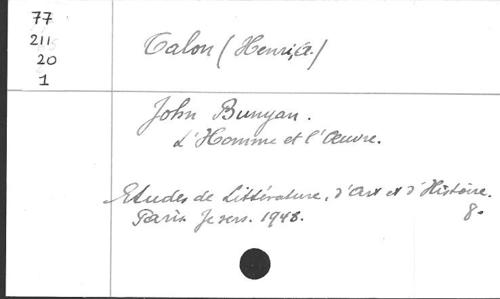 77
211
20
1
Talon (Henri, A.)
John Bunyan.
L'Homme et l'Œuvre.
Etudes de Littérature, d'Art et d'Histoire.
Paris. Je sers. 1948. 8.